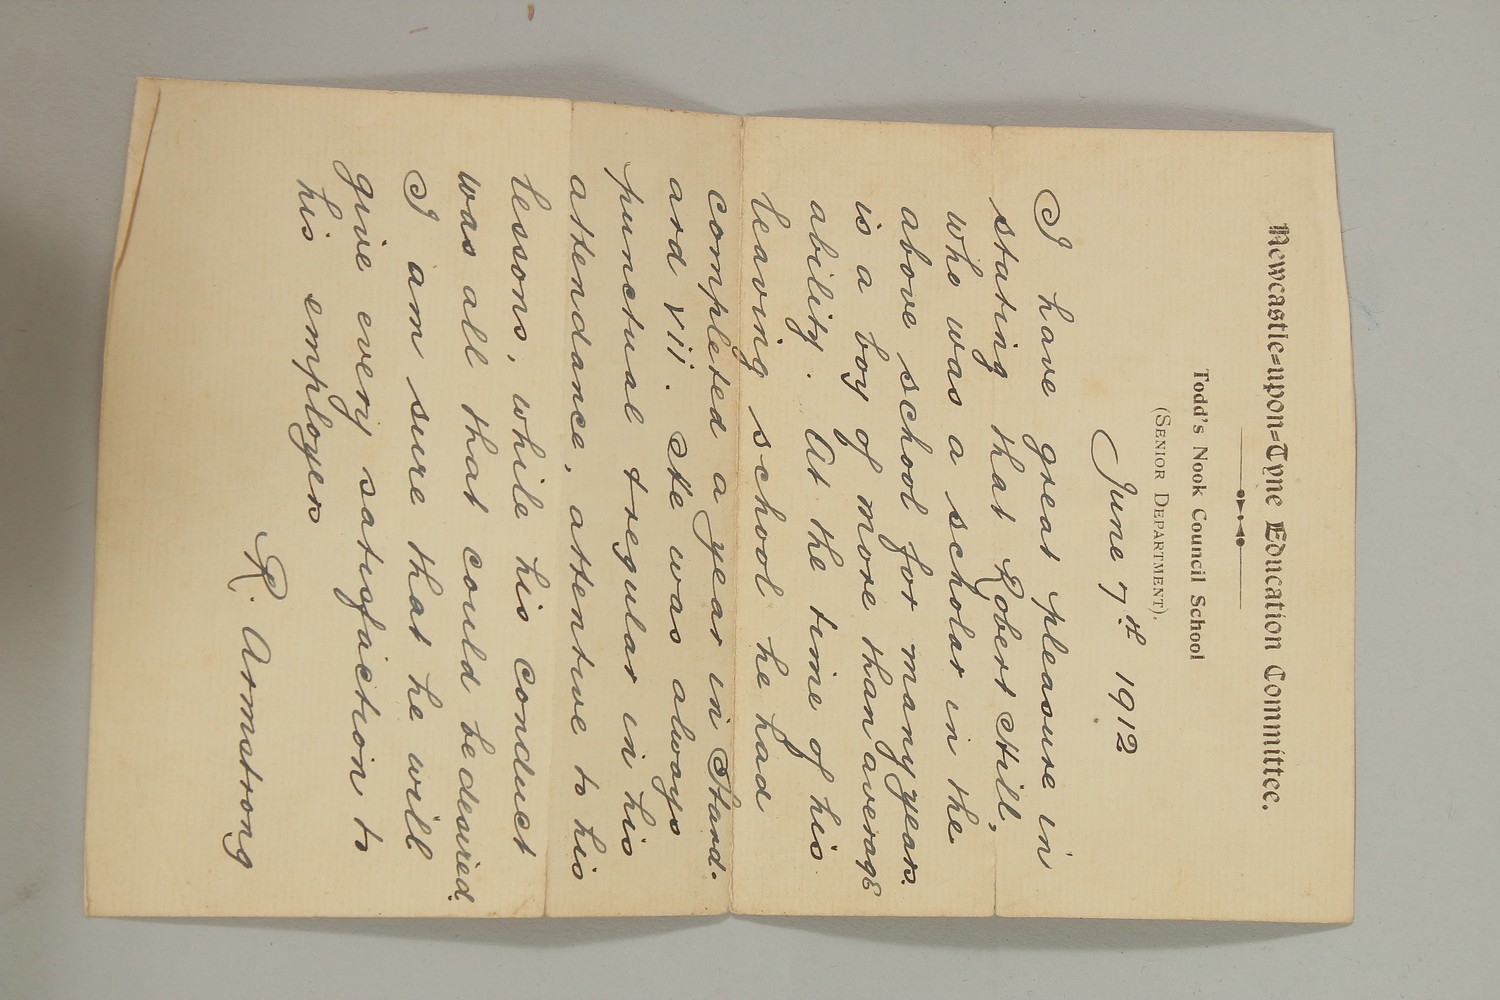 Newcastle=upon=Tyne Education Committee.
Todd's Nook Council School
(SENIOR DEPARTMENT).
June 7th 1912
I have great pleasure in
stating that Robert Hill,
who was a scholar in the
above school for many years.
is a boy of more than average
ability. At the time of his
leaving school he had
completed a year in Stand-
ard vii. He was always
punctual & regular in his
attendance, attentive to his
lessons, while his conduct
was all that could be desired.
I am sure that he will
give every satisfaction to
his employers
R. Armstrong